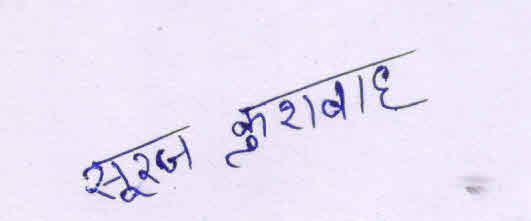 सूरज कुशवाह